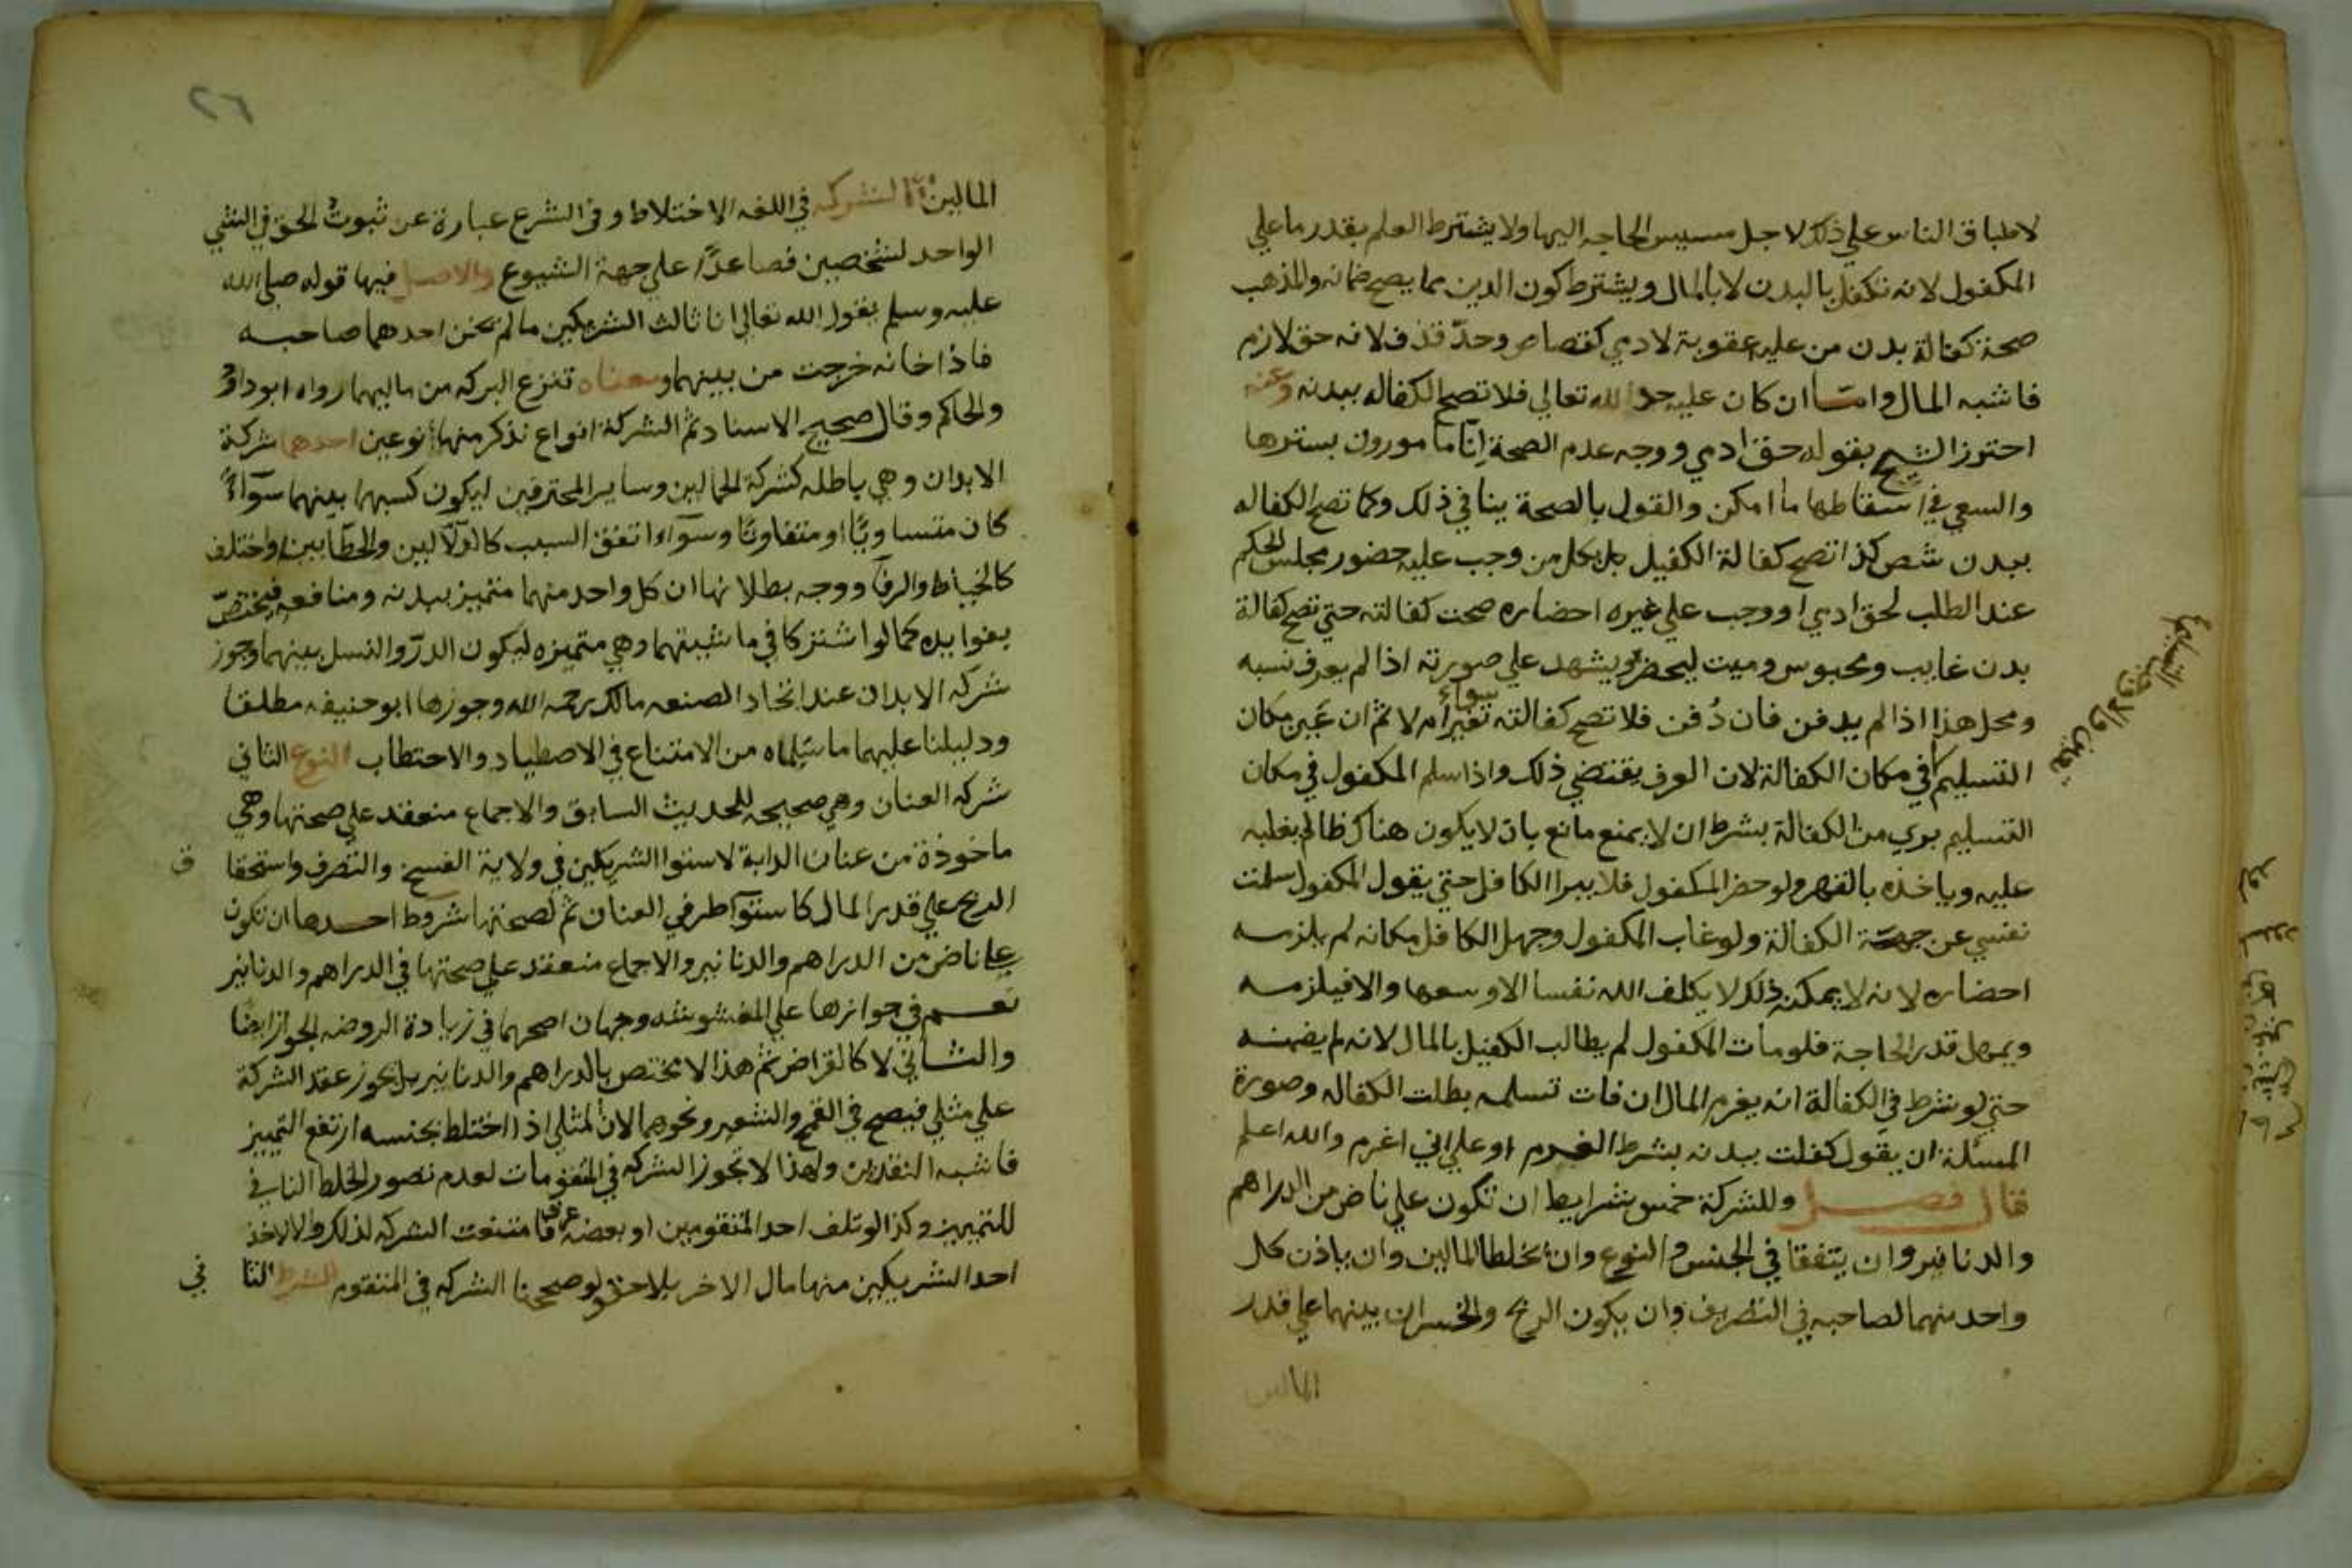 لاطباق الناس علي ذلك لاجل مسيس الحاجه اليها ولا يشترط العلم بقدر ما علي
المكفول لانه تكفل بالبدن لا بالمال ويشترط كون الدين مما يصح ضمانه والمذهب
صحة كفالة بدن من عليه عقوبة لادمي كقصاص وحد قذف لانه حق لازم
فاشبه المال واما ان كان عليه حد الله تعالي فلا تصح الكفاله ببدنه وعنه
احترز الشيخ بقوله حق ادمي ووجه عدم الصحة انا مامورون بسترها
والسعي في اسقاطها ما امكن والقول بالصحة ينافي ذلك وكما تصح الكفاله
ببدن شخص كذا تصح كفالة الكفيل بل بكل من وجب عليه حضور مجلس الحكم
عند الطلب لحق ادمي او وجب علي غيره احضاره صحت كفالته حتي تصح كفالة
بدن غايب ومحبوس وميت ليحضر ويشهد علي صورته اذا لم يعرف نسبه
ومحل هذا اذا لم يدفن فان دُفن فلا تصح كفالته سواء تغير ام لا ثم ان عين مكان
التسليم في مكان الكفالة لان العرف يقتضي ذلك واذا سلم المكفول في مكان
التسليم بري من الكفالة بشرط ان لا يمنع مانع بان لا يكون هناك ظالم يغلبه
عليه وياخذه بالقهر ولو حضر المكفول فلا يبرا الكافل حتي يقول المكفول سلمت
نفسي عن جهة الكفالة ولو غاب المكفول وجهل الكافل مكانه لم يلزمه
احضاره لانه لا يمكنه ذلك لا يكلف الله نفسا الا وسعها والا فيلزمه
ويمهل قدر الحاجة فلو مات المكفول لم يطالب الكفيل بالمال لانه لم يضمنه
حتي لو شرط في الكفالة انه يغرم المال ان فات تسلمه بطلت الكفاله وصورة
المسئلة ان يقول كفلت ببدنه بشرط الغرم او علي اني اغرم والله اعلم
قال فصل وللشركة خمس شرايط ان تكون علي ناض من الدراهم
والدنانير وان يتفقا في الجنس والنوع وان يخلطا المالين وان ياذن كل
واحد منهما لصاحبه في التصرف وان يكون الربح والخسران بينهما علي قدر
المالين
٢٦
المالين الشركه في اللغه الاختلاط وفي الشرع عبارة عن ثبوت الحق في الشي
الواحد لشخصين فصاعدًا علي جهة الشيوع والاصل فيها قوله صلي الله
عليه وسلم يقول الله تعالي انا ثالث الشريكين ما لم يخن احدهما صاحبه
فاذا خانه خرجت من بينهما ومعناه تنزع البركه من ماليهما رواه ابو داود
والحاكم وقال صحيح الاسناد ثم الشركة انواع نذكر منها نوعين احدهما شركة
الابدان وهي باطله كشركة الحمالين وساير المحترفين ليكون كسبهما بينهما سوآءً
كان متساويًا او متفاوتًا وسوآء اتفق السبب كالدلالين والحطابين او اختلف
كالخياط والرفا ووجه بطلانها ان كل واحد منهما متميز ببدنه ومنافعه فيختص
بفوايده كما لو اشتركا في ماشيتهما وهي متميزه ليكون الدر والنسل بينهما وجوز
شركه الابدان عند اتحاد الصنعه مالك رحمه الله وجوزها ابو حنيفه مطلقا
ودليلنا عليهما ما سلماه من الامتناع في الاصطياد والاحتطاب النوع الثاني
شركه العنان وهي صحيحه للحديث السابق والاجماع منعقد علي صحتها وهي
ماخوذة من عنان الدابة لاستوا الشريكين في ولاية الفسخ والتصرف واستحقا ق
الربح علي قدر المال كاستوآ طرفي العنان ثم لصحتها شروط احدها ان تكون
علي ناض من الدراهم والدنانير والاجماع منعقد علي صحتها في الدراهم والدنانير
نعم في جوازها علي المغشوشه وجهان اصحهما في زيادة الروضه الجواز ايضا
والثاني لا كالقراض ثم هذا لا يختص بالدراهم والدنانير بل يجوز عقد الشركة
علي مثلي فيصح في القمح والشعير ونحوهما لان المثلي اذا اختلط بجنسه ارتفع التمييز
فاشبه النقدين ولهذا لا تجوز الشركه في المتقومات لعدم تصور الخلط النافي
للتمييز وكذا لو تلف احد المتقومين او بعضه عرف فامتنعت الشركه لذلك والا لاخذ
احد الشريكين منها مال الاخر بلا حق لو صححنا الشركه في المتقوم الشرط الثا ني